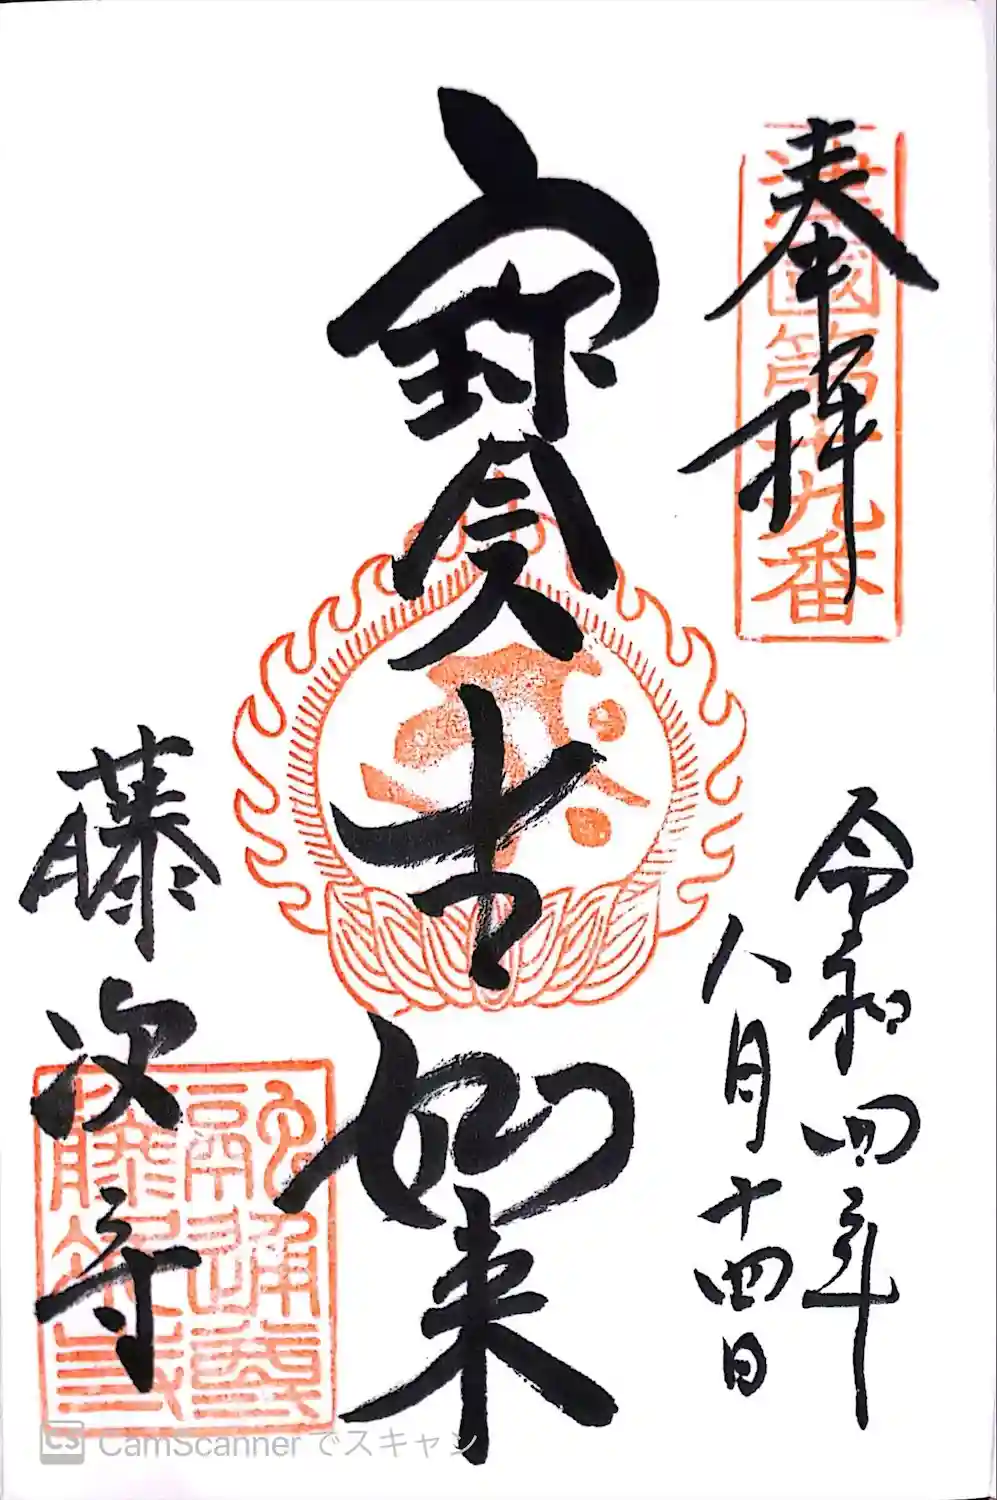 奉拝
津國第十九番
寳生如来
令和四年
八月十四日
藤次寺
融通尊
CamScannerでスキャン